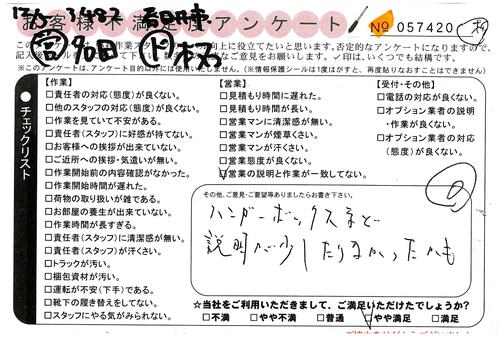 お客様不満足度アンケート No 057420
【作業】
□責任者の対応(態度)が良くない。
□他のスタッフの対応(態度)が良くない。
□作業を見ていて不安がある。
□責任者(スタッフ)に好感が持てない。
□お客様への挨拶が出来ていない。
□ご近所への挨拶・気遣いが無い。
□作業開始前の内容確認がなかった。
□作業開始時間が遅れた。
□荷物の取り扱いが雑である。
□お部屋の養生が出来ていない。
□作業時間が長すぎる。
□責任者(スタッフ)に清潔感が無い。
□責任者(スタッフ)が汗くさい。
□トラックが汚い。
□梱包資材が汚い。
□運転が不安(下手)である。
□靴下の履き替えをしてない。
□スタッフにやる気がみられない。
【営業】
□見積もり時間に遅れた。
□見積もり時間が長い。
□営業マンに清潔感が無い。
□営業マンが煙草くさい。
□営業マンが汗くさい。
□営業態度が良くない。
□営業の説明と作業が一致してない。
【受付・その他】
□電話の対応が良くない。
□オプション業者の説明
・作業が良くない。
□オプション業者の対応
(態度)が良くない。
●チェックリスト
その他、ご意見・ご要望等ありましたらお書き下さい。
ハンガーボックスまで
説明が少したりなかったかも
☆当社をご利用いただきまして、ご満足いただけたでしょうか?
□不満 □やや不満 □普通 □やや満足 □満足